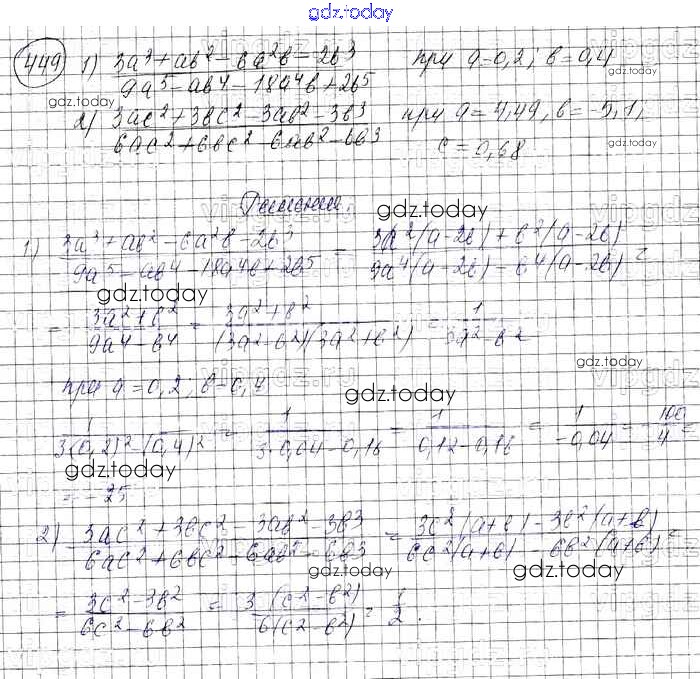 gdz.today
449 1) (3a³ + ab² - 6a²b - 2b³)/(9a⁵ - ab⁴ - 18a⁴b + 2b⁵) при a = 0,2; b = 0,4
gdz.today
2) (3ac² + 3bc² - 3ab² - 3b³)/(6ac² + 6bc² - 6ab² - 6b³) при a = 4,49, b = -5,1,
c = 0,68
gdz.today
Решение
gdz.today
1) (3a³ + ab² - 6a²b - 2b³)/(9a⁵ - ab⁴ - 18a⁴b + 2b⁵) = (3a²(a - 2b) + b²(a - 2b))/(9a⁴(a - 2b) - b⁴(a - 2b)) =
gdz.today
= (3a² + b²)/(9a⁴ - b⁴) = (3a² + b²)/((3a² - b²)(3a² + b²)) = 1/(3a² - b²)
gdz.today
при a = 0,2; b = 0,4
gdz.today
1/(3(0,2)² - (0,4)²) = 1/(3·0,04 - 0,16) = 1/(0,12 - 0,16) = 1/(-0,04) = - 100/4 =
gdz.today
= - 25
2) (3ac² + 3bc² - 3ab² - 3b³)/(6ac² + 6bc² - 6ab² - 6b³) = (3c²(a + b) - 3b²(a + b))/(6c²(a + b) - 6b²(a + b)) =
gdz.today
gdz.today
= (3c² - 3b²)/(6c² - 6b²) = 3(c² - b²)/6(c² - b²) = 1/2.